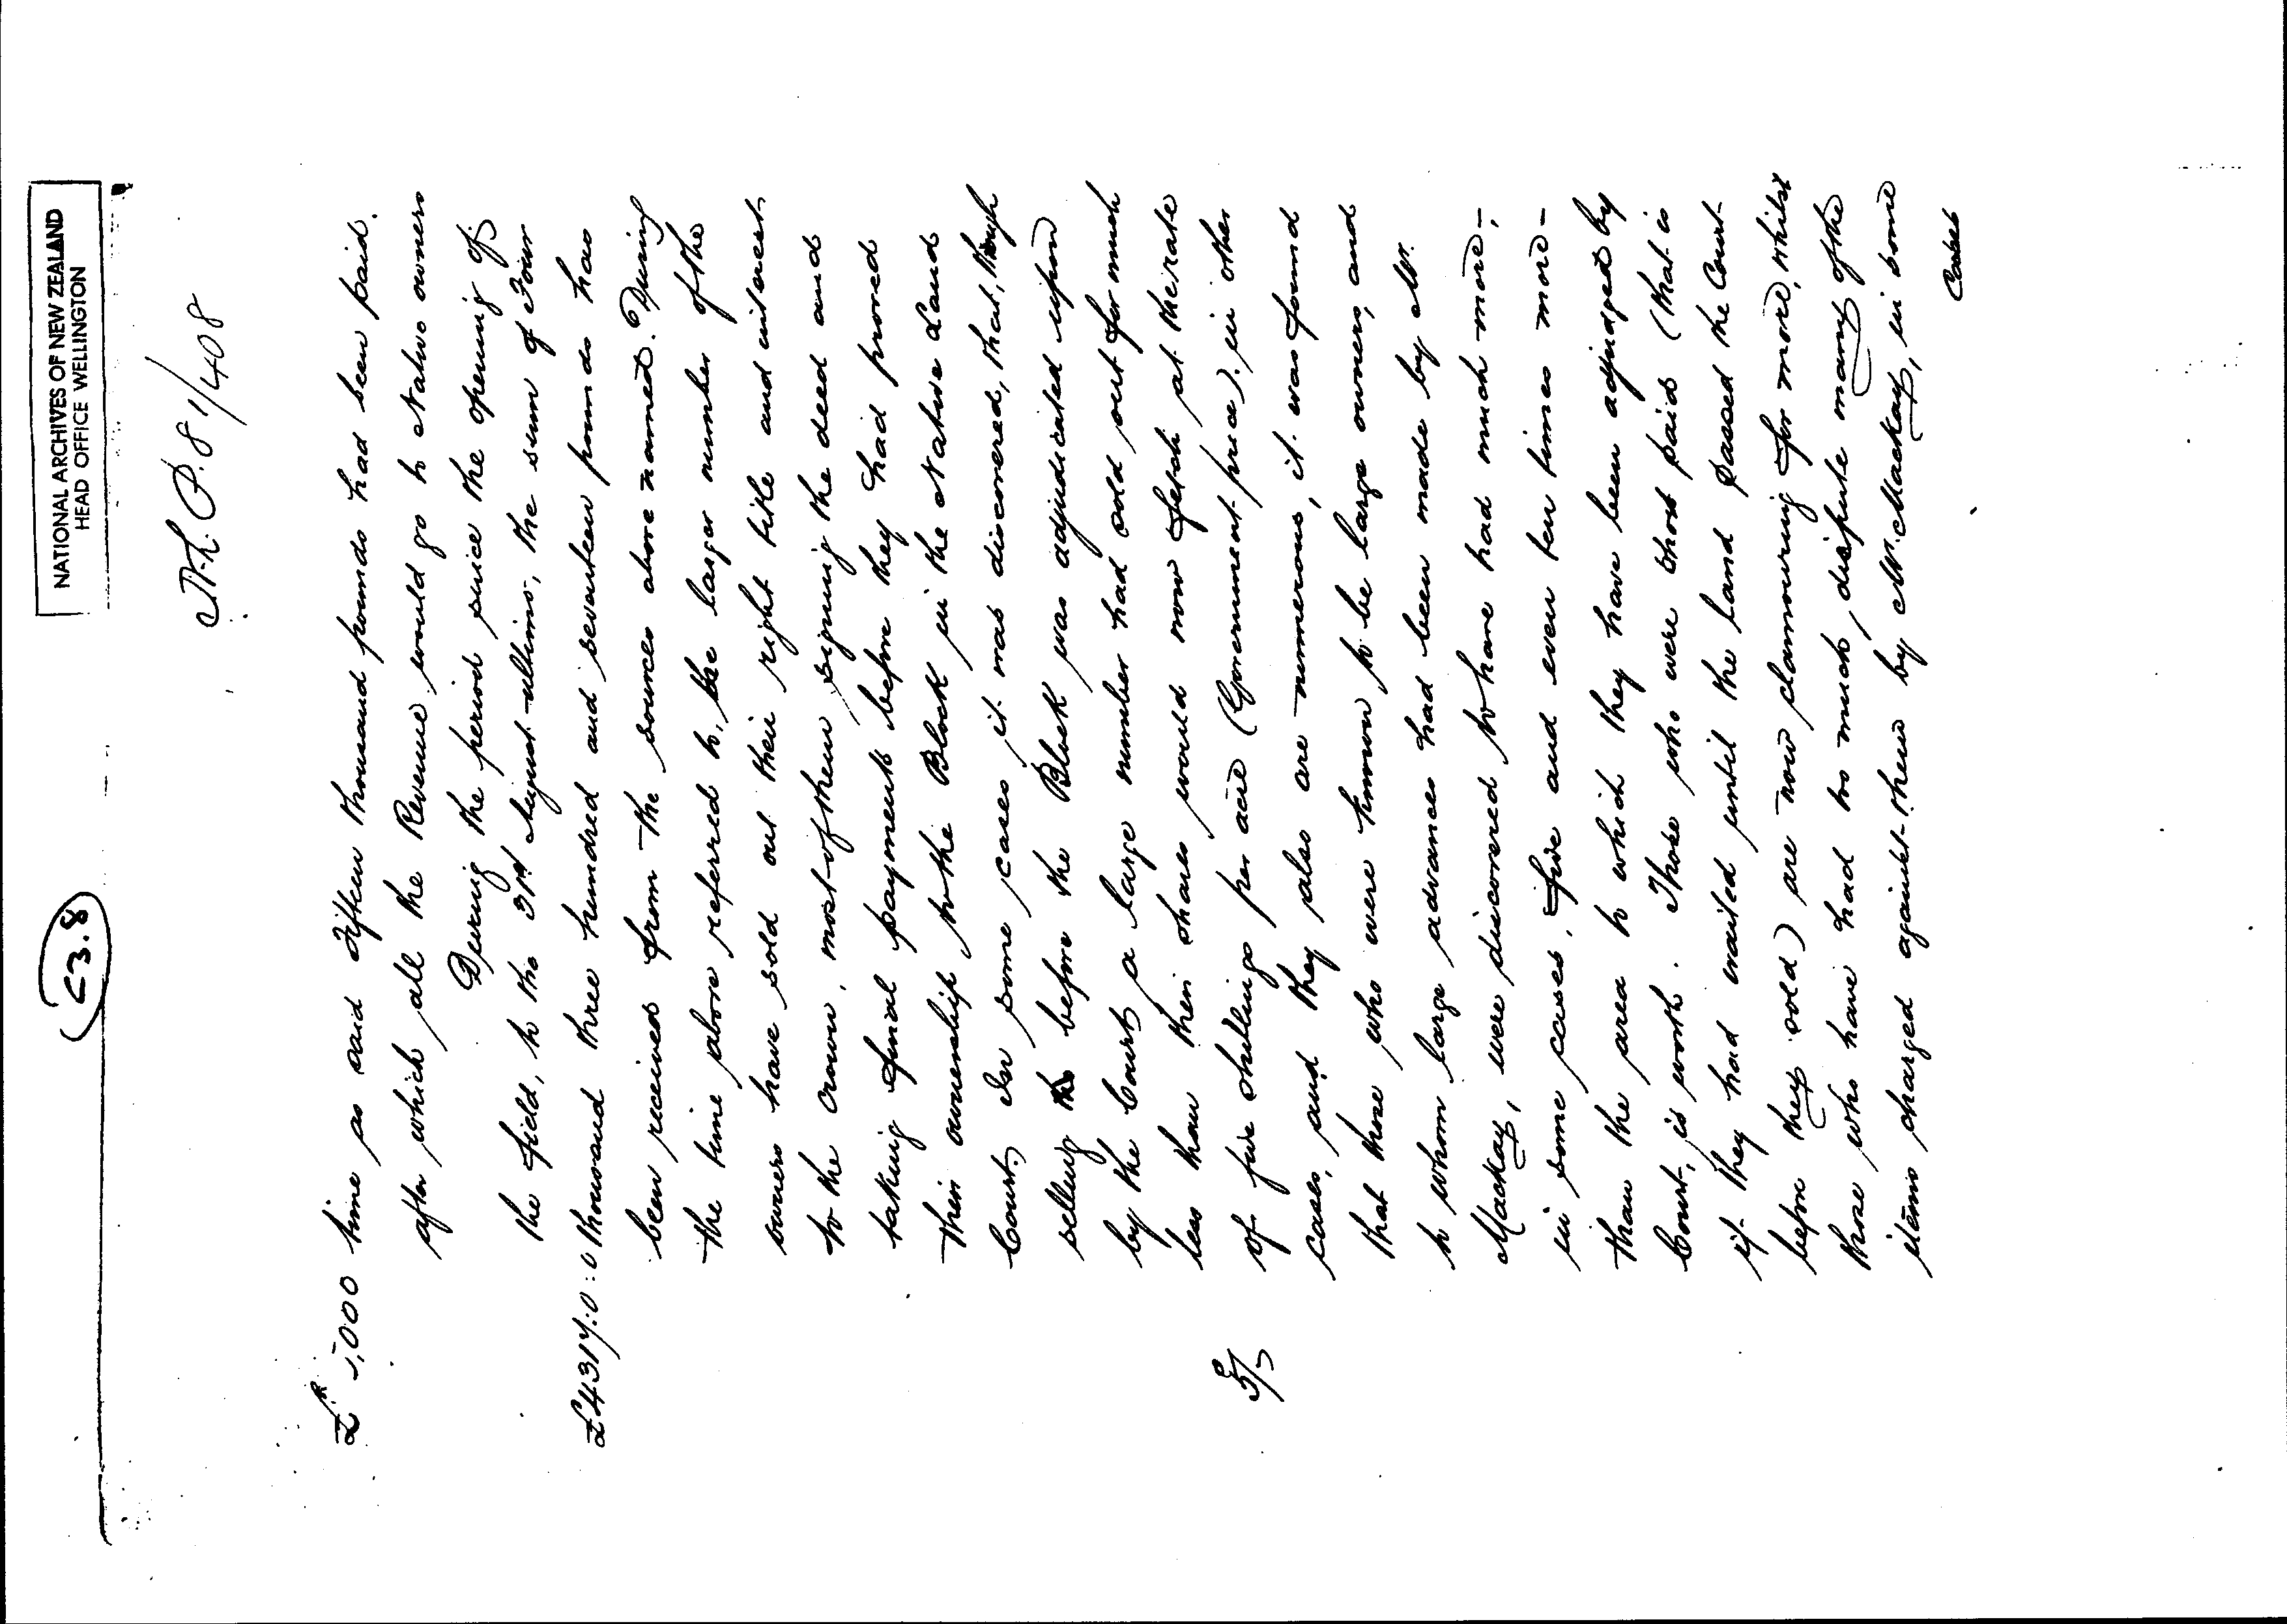 C3.8
NATIONAL ARCHIVES OF NEW ZEALAND
HEAD OFFICE WELLINGTON
N.L.P. 81/408
£ 5,000 time as said fifteen thousand pounds had been paid.
after which all the Revenue would go to Native owners
During the period since the opening of
the field, to the 31st August ultimo, the sum of Four
£4317:0:0 thousand three hundred and seventeen pounds has
been received from the sources above named. During
the time above referred to, the larger number of the
owners have sold out their right title and interest
to the Crown, most of them signing the deed and
taking final payments before they had proved
their ownership to the Block in the Native Land
Court. In some cases it was discovered, that, through
selling before the Block was adjudicated upon
by the Court, a large number had sold out for much
less than their shares would now fetch at the rate
5/ of five shillings per acre (Government price), in other
cases, and they also are numerous, it was found
that those who were known to be large owners, and
to whom large advances had been made by Mr.
Mackay, were discovered to have had much more,
in some cases, five and even ten times more
than the area to which they have been adjudged by
Court, is worth. Those who were short paid (that is
if they had waited until the land passed the Court
before they sold) are now clamouring for more, whilst
those who have had too much, dispute many of the
items charged against them by Mr. Mackay, in some
Cases